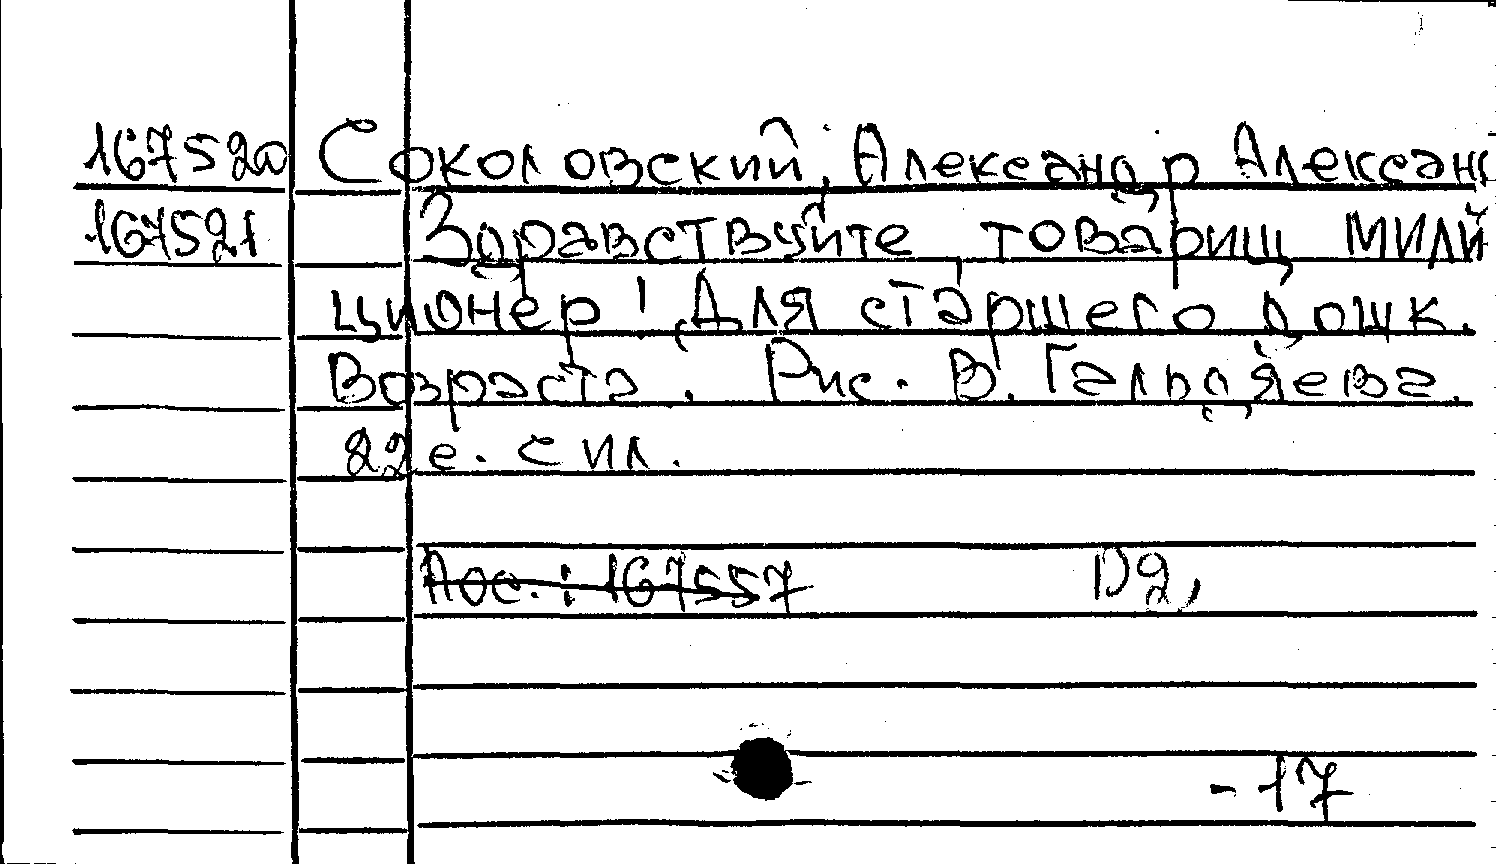 167520 Соколовский, Александр Александ
167521 Здравствуйте товарищ мили
ционер! Для старшего дошк.
возраста. Рис. В. Гальдяева.
22 с. с ил.
Пос.: 167557 D2,
-17